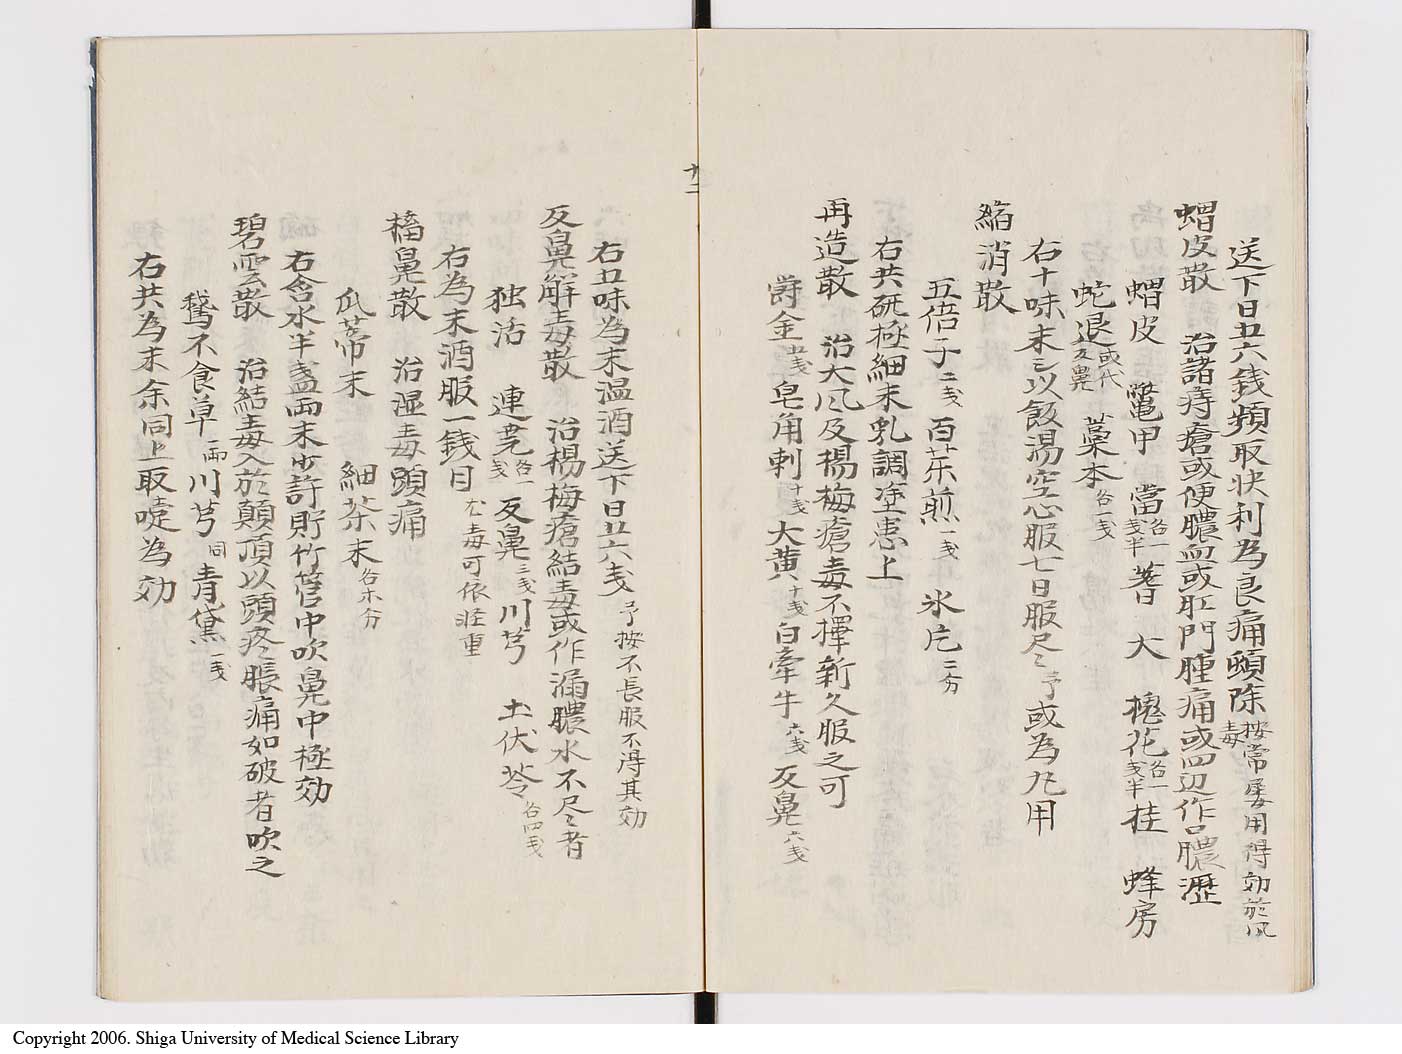 送下日五六銭頻取快利為良痛頭除 按常屡用得効於風毒
蝟皮散 治諸痔瘡或便膿血或肛門腫痛或四辺作口膿瀝
蝟皮 鼈甲 當 各一戔半 蓍 大 槐花 各一戔半 桂 蜂房
蛇退 或代反鼻 藁本 各一戔
右十味末ミ以飯湯空心服七日服尽ミ予或為丸用
縮消散
五倍子 二戔 百茶煎 一戔 氷片 二分
右共研極細末乳調塗患上
再造散 治大风及楊梅瘡毒不擇新久服之可
爵金 五戔 皂角刺 十戔 大黄 十戔 白牽牛 六戔 反鼻 六戔
十二
右五味為末温酒送下日五六戔 予按不長服不得其効
反鼻解毒散 治楊梅瘡結毒或作漏膿水不尽ミ者
独活 連尭 各一戔 反鼻 三戔 川芎 土伏苓 各四戔
右為末酒服一銭日 尤毒可依軽重
搐鼻散 治湿毒頭痛
瓜蒂末 細茶末 各木分
右含水半盞両末少許貯竹管中吹鼻中極効
碧雲散 治結毒入於顛頂以頭疼脹痛如破者吹之
鵝不食草 一両 川芎 同 青黛 一戔
右共為末余同上取嚏為効
Copyright 2006. Shiga University of Medical Science Library